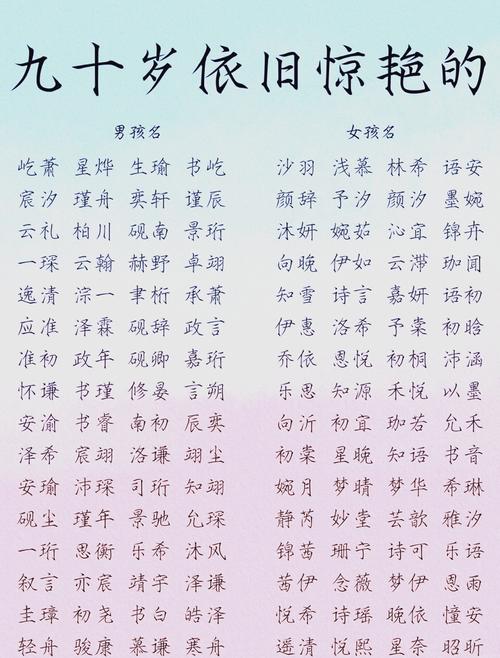 九十岁依旧惊艳的
男孩名 女孩名
屹萧 星烨 生瑜 书屹 沙羽 浅慕 林希 语安
宸汐 瑾舟 奕轩 谨辰 颜辞 予汐 颜汐 墨婉
云礼 柏川 砚南 景珩 沐妍 婉茹 沁宜 锦卉
一琛 云翰 赫野 卓翊 向晚 伊如 云滞 珈闻
逸清 淙一 聿桁 承萧 知雪 诗言 嘉妍 语初
应淮 泽霖 砚辞 政言 伊惠 洛希 予棠 初晗
准初 政年 砚卿 嘉珩 乔依 恩悦 初桐 沛涵
怀谦 书瑾 修晏 言朔 乐思 知源 禾悦 以墨
安渝 书睿 南初 辰奕 向沂 初宜 珈若 允禾
泽希 宸翊 洛谦 翊尘 初棠 星晚 知语 书音
安瑜 沛琛 司珩 知翊 婉月 梦晴 梦华 希琳
砚尘 瑾年 景驰 允琛 静芮 妙堂 芸歆 雅汐
一珩 思衡 乐希 沐风 锦茜 珊宁 诗可 乐语
叙言 亦宸 靖宇 泽谦 茜伊 念薇 梦伊 恩雨
圭璋 初尧 书白 皓泽 悦希 诗瑶 晚依 憧安
轻舟 骏康 慕谦 寒舟 遥清 悦熙 星奈 昭昕